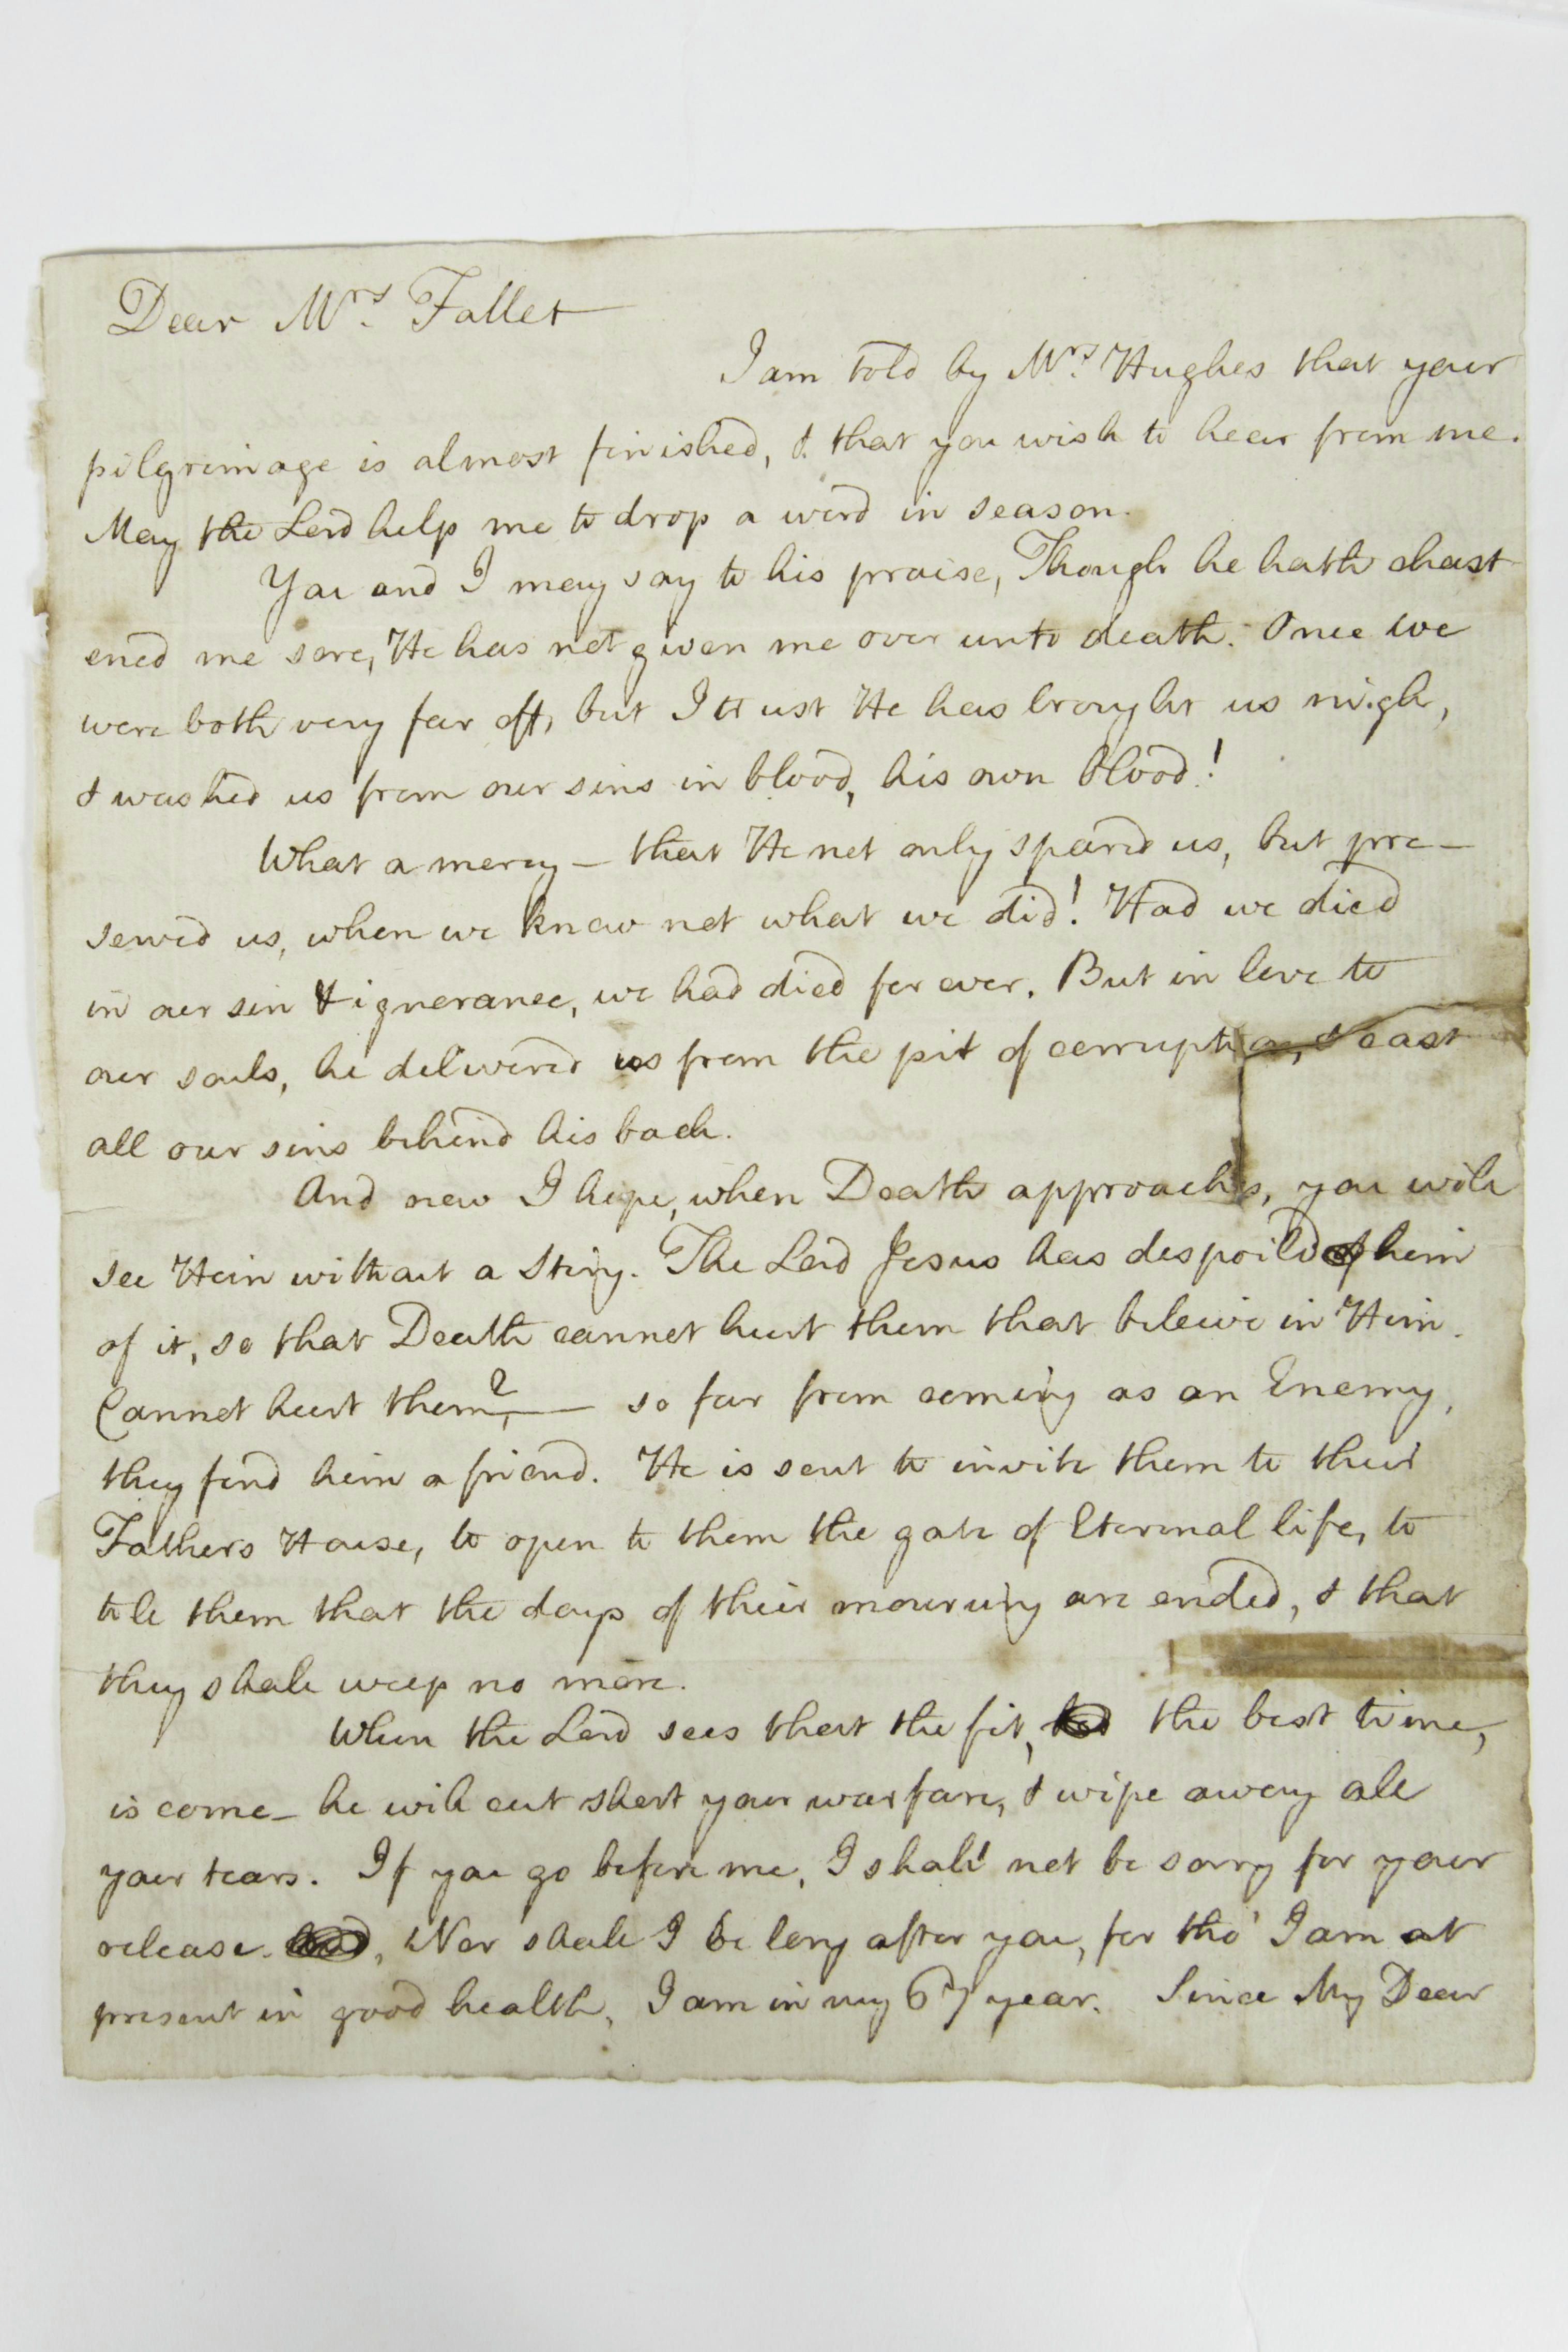 Dear Mrs. Fallet
I am told by Mrs. Hughes that your
pilgrimage is almost finished, & that you wish to hear from me.
May the Lord help me to drop a word in season.
You and I may say to his praise, Though he hath chast
ened me sore, He has not given me over unto death. Once we
were both very far off, but I trust He has brought us nigh,
& washed us from our sins in blood, his own blood!
What a mercy – that He not only spared us, but pre–
served us, when we knew not what we did! Had we died
in our sin & ignorance, we had died for ever. But in love to
our souls, he delivered us from the pit of corruption, & cast
all our sins behind his back.
And now I hope, when Death approaches, you will
see Him without a Sting. The Lord Jesus has despoild him
of it, so that Death cannot hurt them that beleive in Him.
Cannot hurt them? — so far from coming as an Enemy,
they find him a friend. He is sent to invite them to their
Fathers House, to open to them the gate of Eternal life, to
tell them that the days of their mourning are ended, & that
they shall weep no more.
When the Lord sees that the fit, the best time,
is come – he will cut short your warfare, & wipe away all
your tears. If you go before me, I shall not be sorry for your
release. Nor shall I be long after you, for tho' I am at
present in good health, I am in my 67 year. Since My Dear